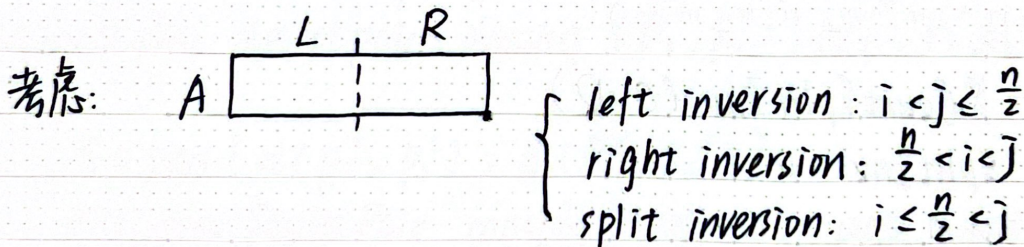 L R
考虑: A
left inversion: i < j ≤ n/2
right inversion: n/2 < i < j
split inversion: i ≤ n/2 < j